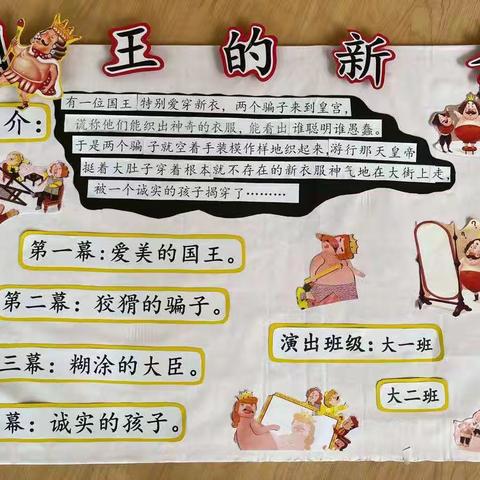 王的新
介：
有一位国王 特别爱穿新衣，两个骗子来到皇宫，
谎称他们能织出神奇的衣服，能看出谁聪明谁愚蠢。
于是两个骗子就空着手装模作样地织起来,游行那天皇帝
挺着大肚子穿着根本就不存在的新衣服神气地在大街上走,
被一个诚实的孩子揭穿了⋯⋯⋯
第一幕：爱美的国王。
第二幕：狡猾的骗子。
三幕：糊涂的大臣。
幕：诚实的孩子。
演出班级：大一班
大二班